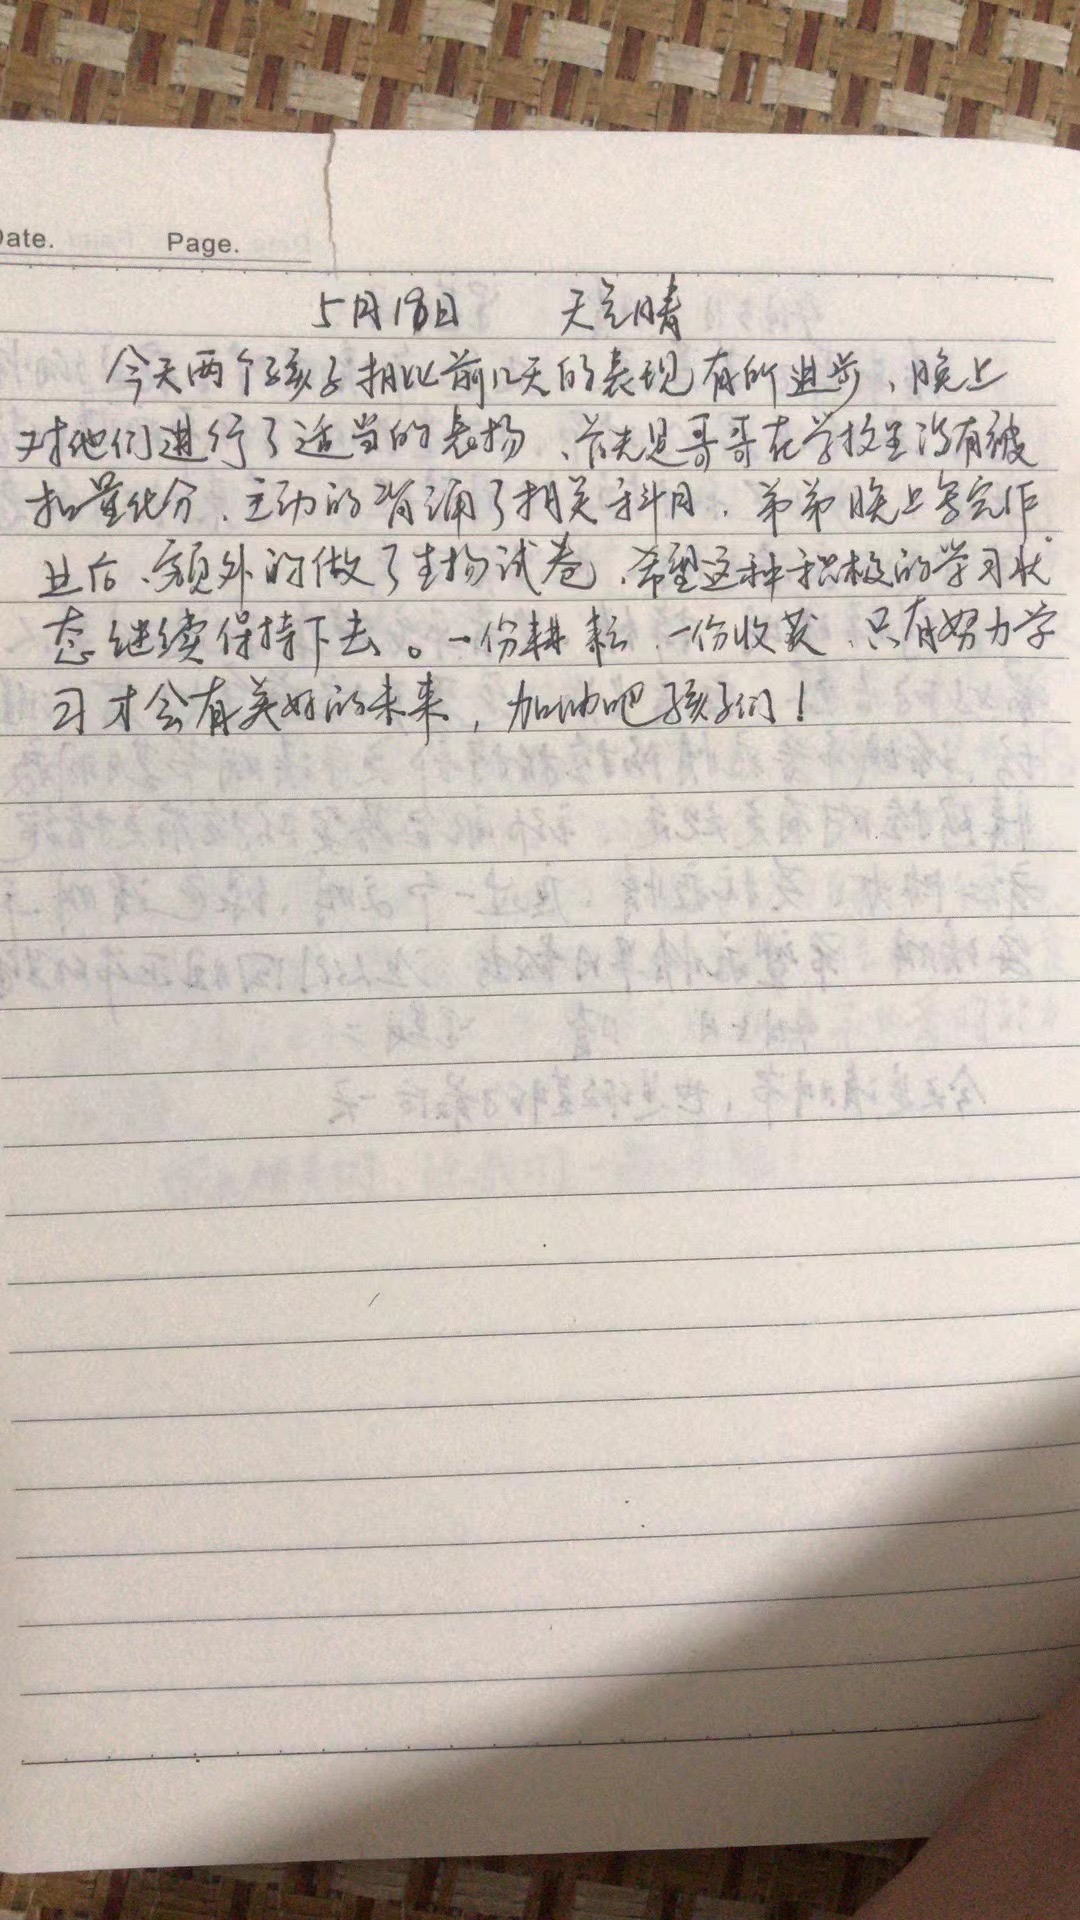 Date. Page.
5月18日 天气晴
今天两个孩子相比前几天的表现有所进步、晚上
对他们进行了适当的表扬、首先是哥哥在学校里没有被
扣量化分、主动的背诵了相关科目、弟弟晚上写完作
业后、额外的做了生物试卷、希望这种积极的学习状
态继续保持下去。一份耕耘、一份收获、只有努力学
习才会有美好的未来，加油吧孩子们！